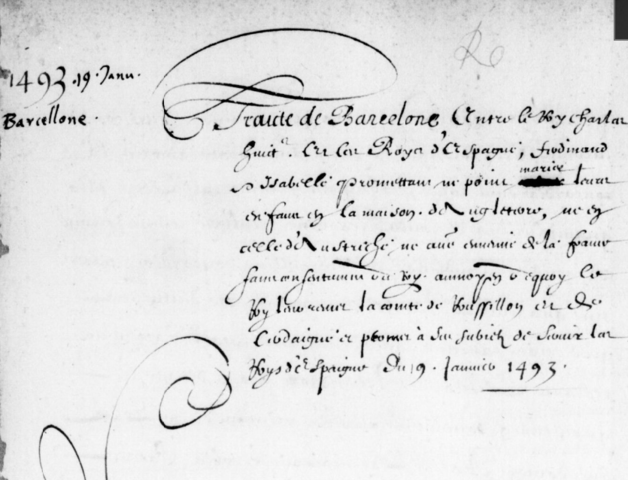 1493 .19. Janv.
Barcellone.
Traicté de Barcelone Entre le Roy Charles
huict.e Et les Roys d'Espagne, Ferdinand
et Isabelle promettans ne point marier leurs
enfans en la maison d'Angleterre, ne en
celle d'Austriche, ne avec ennemis de la france
sans consentement du Roy. au moyen de quoy le
Roy leur rend la comté de Roussillon et de
Cerdaigne et promet à ses subiects de servir les
Roys d'Espaigne Du 19. Janvier 1493.